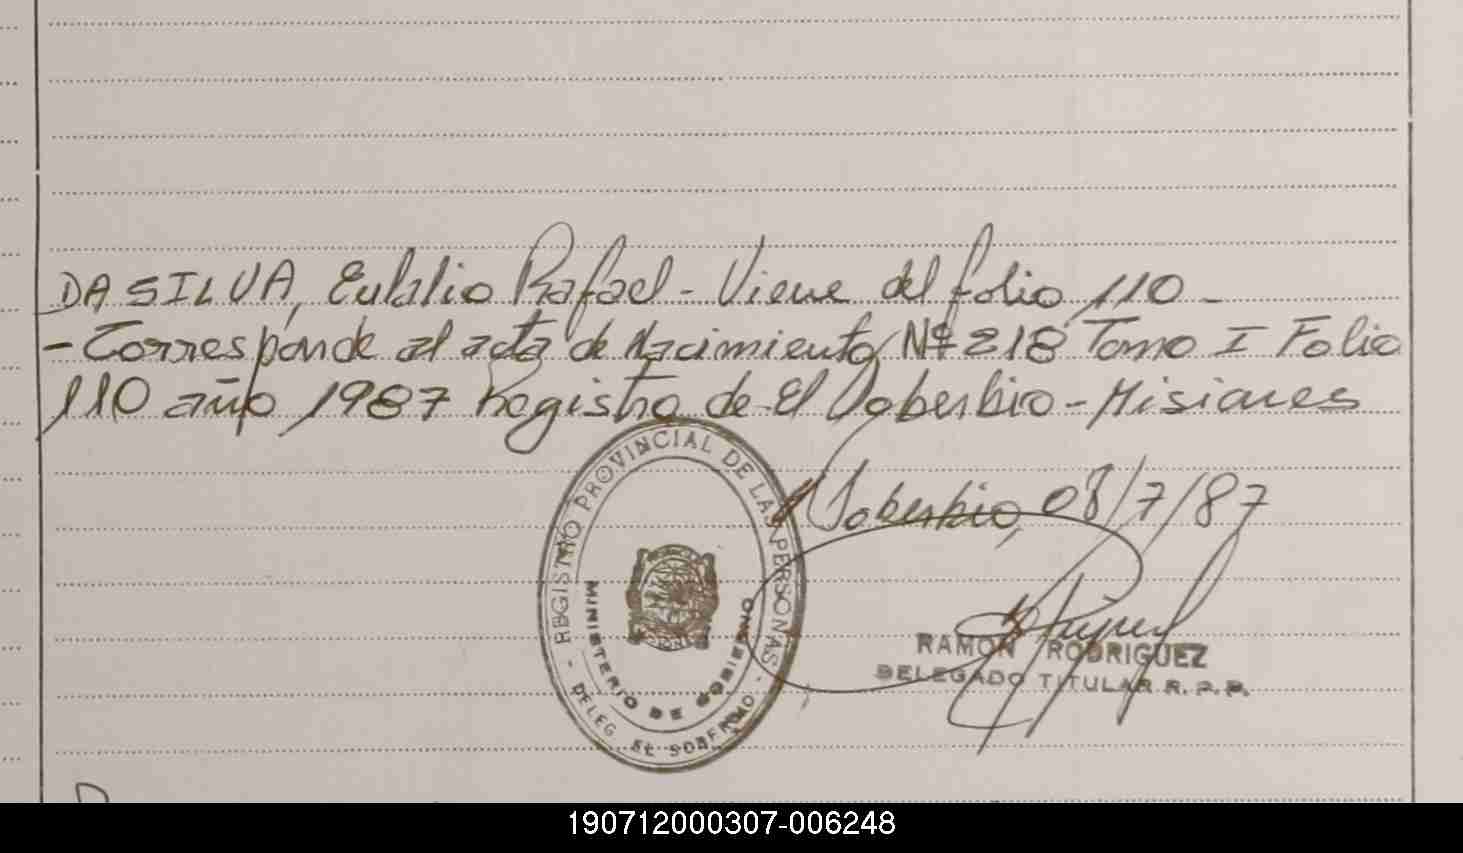 DA SILVA, Eulalio Rafael - Viene del folio 110 -
- Corresponde al acta de Nacimiento Nº 218 Tomo I Folio
110 año 1987 Registro de El Soberbio - Misiones
REGISTRO PROVINCIAL DE LAS PERSONAS
MINISTERIO DE GOBIERNO
- DELEG. EL SOBERBIO -
Soberbio, 08/7/87
RAMON RODRIGUEZ
DELEGADO TITULAR R. P. P.
190712000307-006248